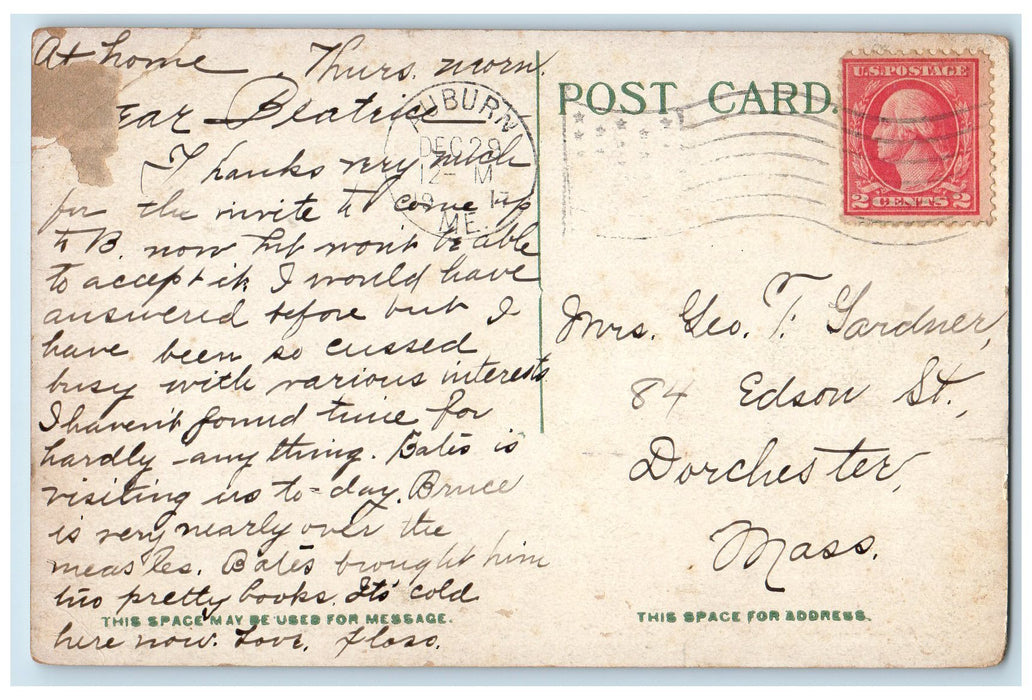 At home, Thurs. morn.
ear Beatrice
Thanks very much
for the invite to come up
to B. now but won't be able
to accept it. I would have
answered before but I
have been so cussed
busy with various interests
I haven't found time for
hardly anything. Bates is
visiting us to-day. Bruce
is very nearly over the
measles. Bates brought him
two pretty books. It's cold
THIS SPACE MAY BE USED FOR MESSAGE.
here now. Love, Floss.
POST CARD.
AUBURN
DEC 28
12- M
19 17
ME.
U.S. POSTAGE
2 CENTS 2
Mrs. Geo. T. Gardner,
84 Edson St.,
Dorchester,
Mass.
THIS SPACE FOR ADDRESS.